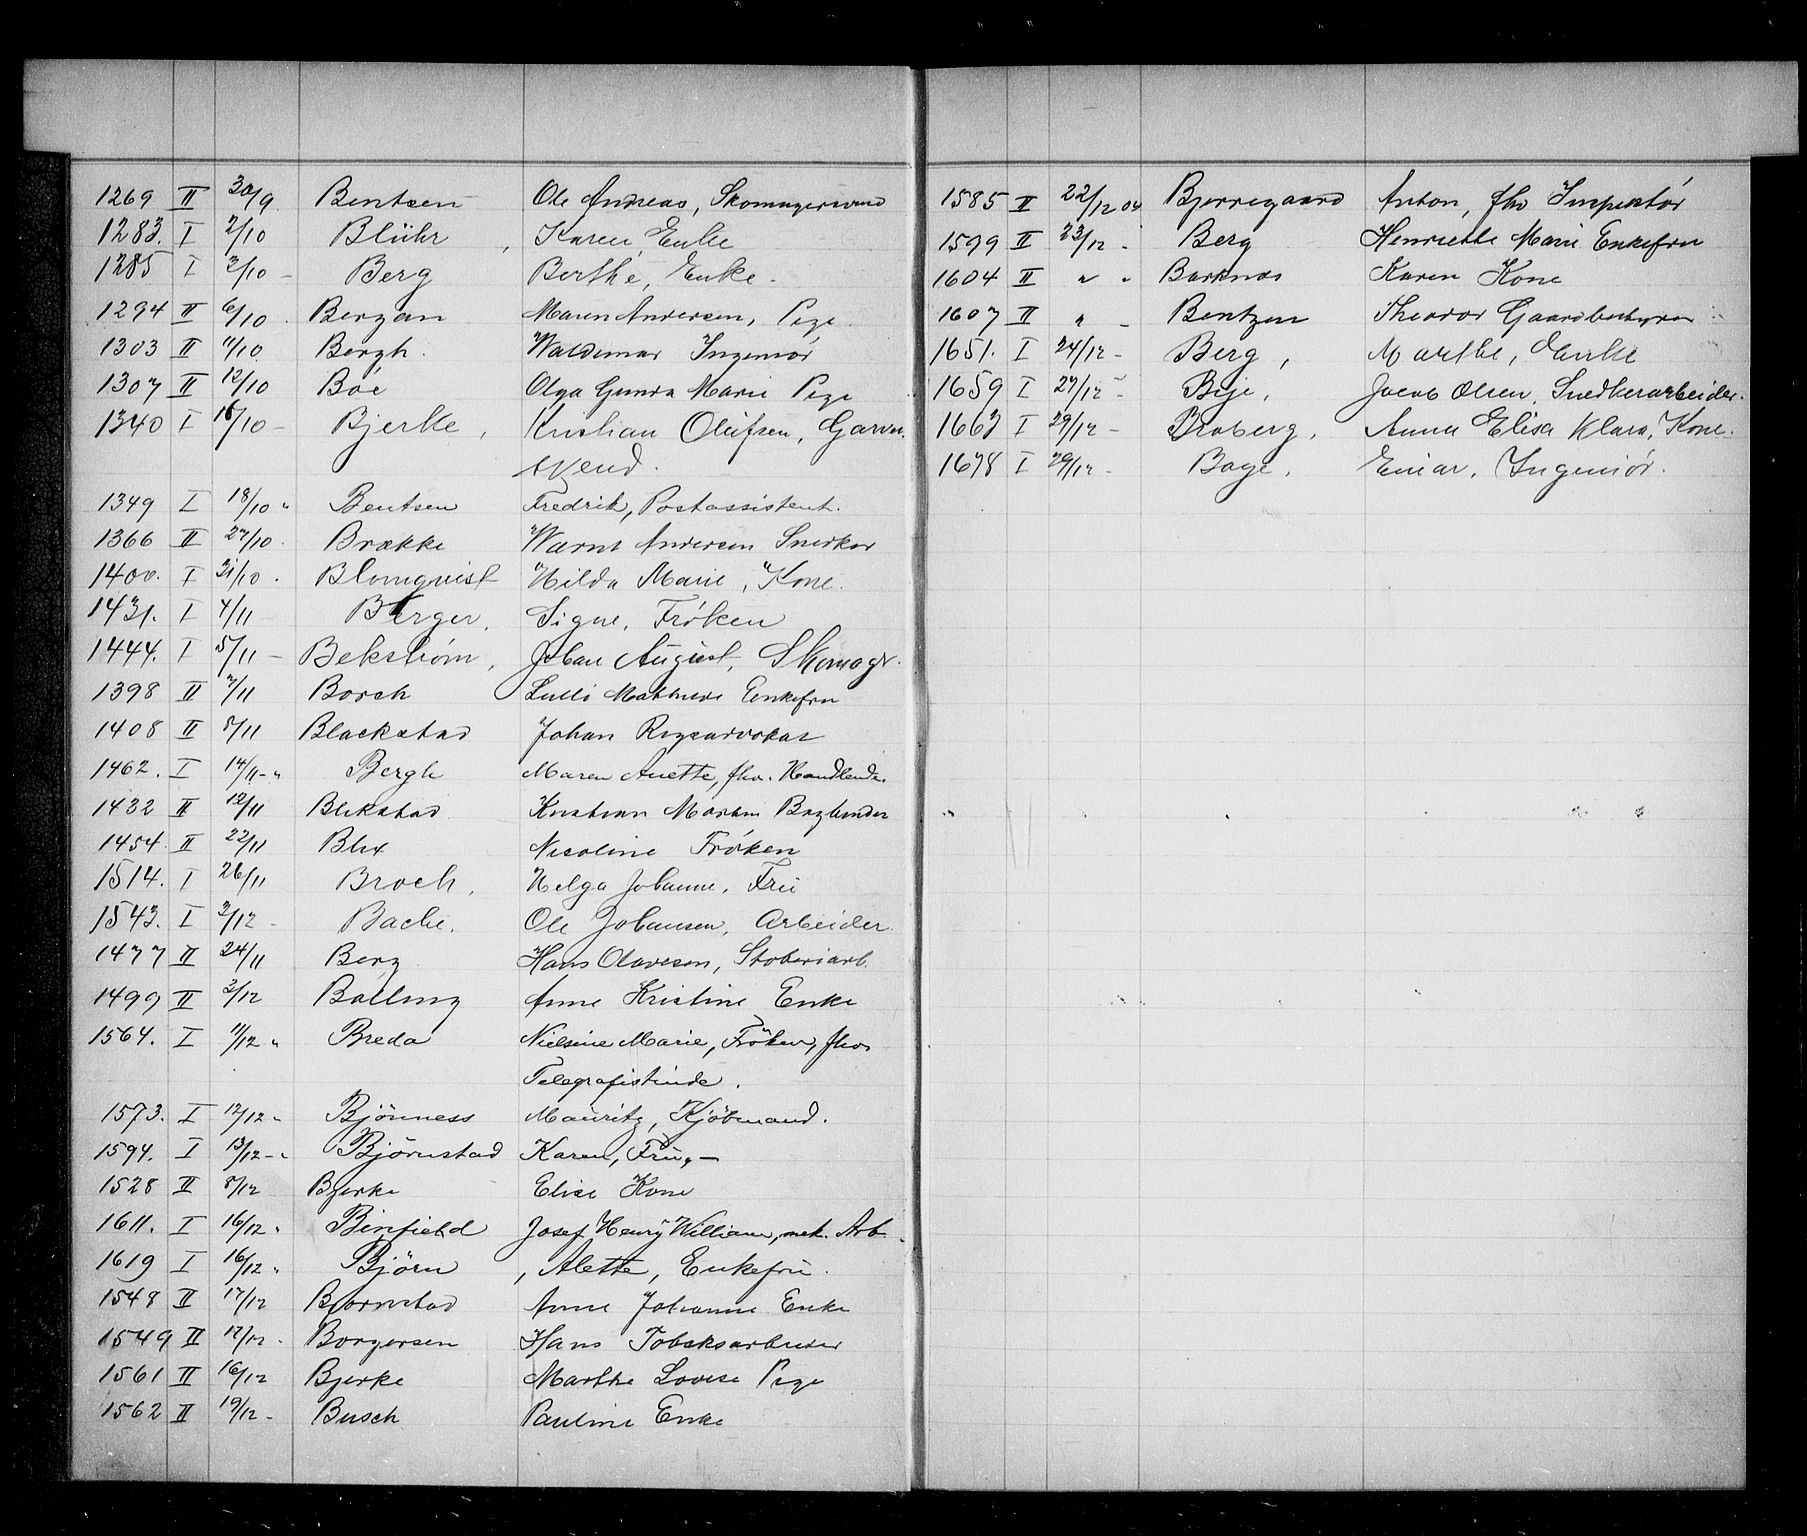 1269 II 30/9 Bentsen Ole Andreas, Skomagersvend
1283. I 2/10 Blühr, Karen, Enke
1285 I 3/10 – Berg Berthe, Enke.
1294 II 6/10 Bergan Maren Andersen, Pige
1303 II 11/10 Bergh. Waldemar Ingeniør
1307 II 12/10 Bøe Olga Gunda Marie Pige
1340 I 15/10 – Bjerke, Kristian Olufsen, Garver
svend.
1349 I 18/10 " Bentsen Fredrik, Postassistent.
1366 II 27/10. Brække Warnt Andersen Snedker
1400. I 31/10. Blomqvist Hilda Marie, Kone.
1431. I 4/11 Berger, Signe, Frøken
1444. I 5/11 – Bekstrøm, Johan August, Skomagr.
1398 II 7/11 Borch Lulli Mathilde Enkefru
1408 II 8/11 Blackstad Johan Regsadvokat
1462. I 14/11 – " Bergh Maren Anette, fhv. Handlende.
1432 II 12/11 Blikstad Kristian Martin Bagbinder
1454 II 22/11 Blix Nicoline Frøken
1514. I 26/11 Broch, Helga Johanne, Fru
1543. I 3/12 – Bache, Ole Johansen, Arbeider
1477 II 24/11 Berg Hans Olavesen, Støberiarb.
1499 II 3/12 Balling Anne Kristine Enke
1564. I 11/12 " Breda Nielsine Marie, Frøken, fhv
Telegrafistinde.
1573. I 12/12 " Bjönness Mauritz, Kjöbmand.
1594. I 13/12 – " Bjørnstad Karen, Fru, –
1528 II 8/12 Bjerke Elise Kone
1611. I 16/12 " Binfield Josef Henry William, mek. Arb.
1619 I 16/12 " Björn, Alette, Enkefru.
1548 II 17/12 Bjørnstad Anne Johanne Enke
1549 II 12/12 – Borgersen Hans Tobaksarbeider
1561 II 16/12 Bjerke Marthe Lovise Pige
1562 II 19/12 – Busch Pauline Enke
1585 II 22/12 04 Bjerregaard Anton, fhv Inspektør
1599 II 23/12 – Berg Henriette Marie Enkefru
1604 II " " Barknæs Karen Kone
1607 II " – Bentzen Theodor Gaardbestyrer
1651. I 24/12 – Berg, Marthe, Enke
1659 I 27/12 – Bye, Jacob Olsen, Snedkerarbeider.
1663 I 29/12 – Broberg, Anna Elisa Klara, Kone.
1678 I 29/12 – Boye, Einar, Ingeniør.